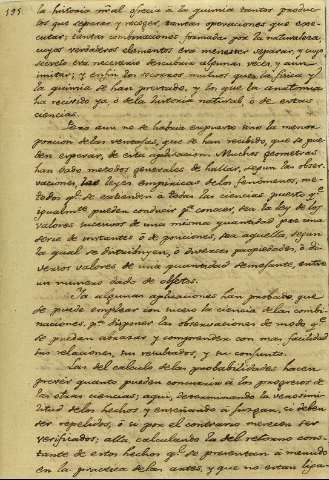 195
la historia nãl. ofrecia à la quimia tantos produc-
tos que separar y recoger, tantas operaciones que exe-
cutar; tantas combinaciones formadas por la naturaleza,
cuyos verdaderos elementos era menester separar, y cuyo
secreto era necesario descubrir algunas veces, y aun
imitar; y enfin los socorros mutuos que la fisica y
la quimia se han prestado, y lo que la anatomia
ha recibido ya, ó de la historia natural, ó de estas
ciencias.
Pero aun no se habria expuesto sino la menor
porcion de las ventajas, que se han recibido, que se pue-
den esperar, de esta aplicacion. Muchos geometras
han dado metodos generales de hallar, segun las obser-
vaciones, las leyes empiricas de los fenomenos, me-
todos qe. se extienden a todas las ciencias, puesto qe.
igualmte. pueden conducir pa. conocer, sea la ley de los
valores sucesivos de una misma quantidad por una
serie de instantes ó de posiciones, sea aquella segun
la qual se distribuyen, ó diversas propiedades, ó di-
versos valores de una quantidad semejante, entre
un numero dado de objetos.
Ya algunas aplicaciones han probado, que
se puede emplear con suceso la ciencia de las combi-
naciones, pa. disponer las observaciones de modo qe.
se puedan abrazar y comprender con mas facilidad
sus relaciones, sus resultados, y su conjunto.
Las del calculo de las probabilidades hacen
preveér quanto pueden concurrir á los progresos de
las otras ciencias; aqui, determinando la verosimi-
litud de los hechos y enseñando á juzgar, si deben
ser repelidos, ó si por el contrario merecen ser
verificados: alla, calculando la del retorno cons-
tante de estos hechos qe. se presentan á menudo
en la practica de las artes, y que no estan liga-